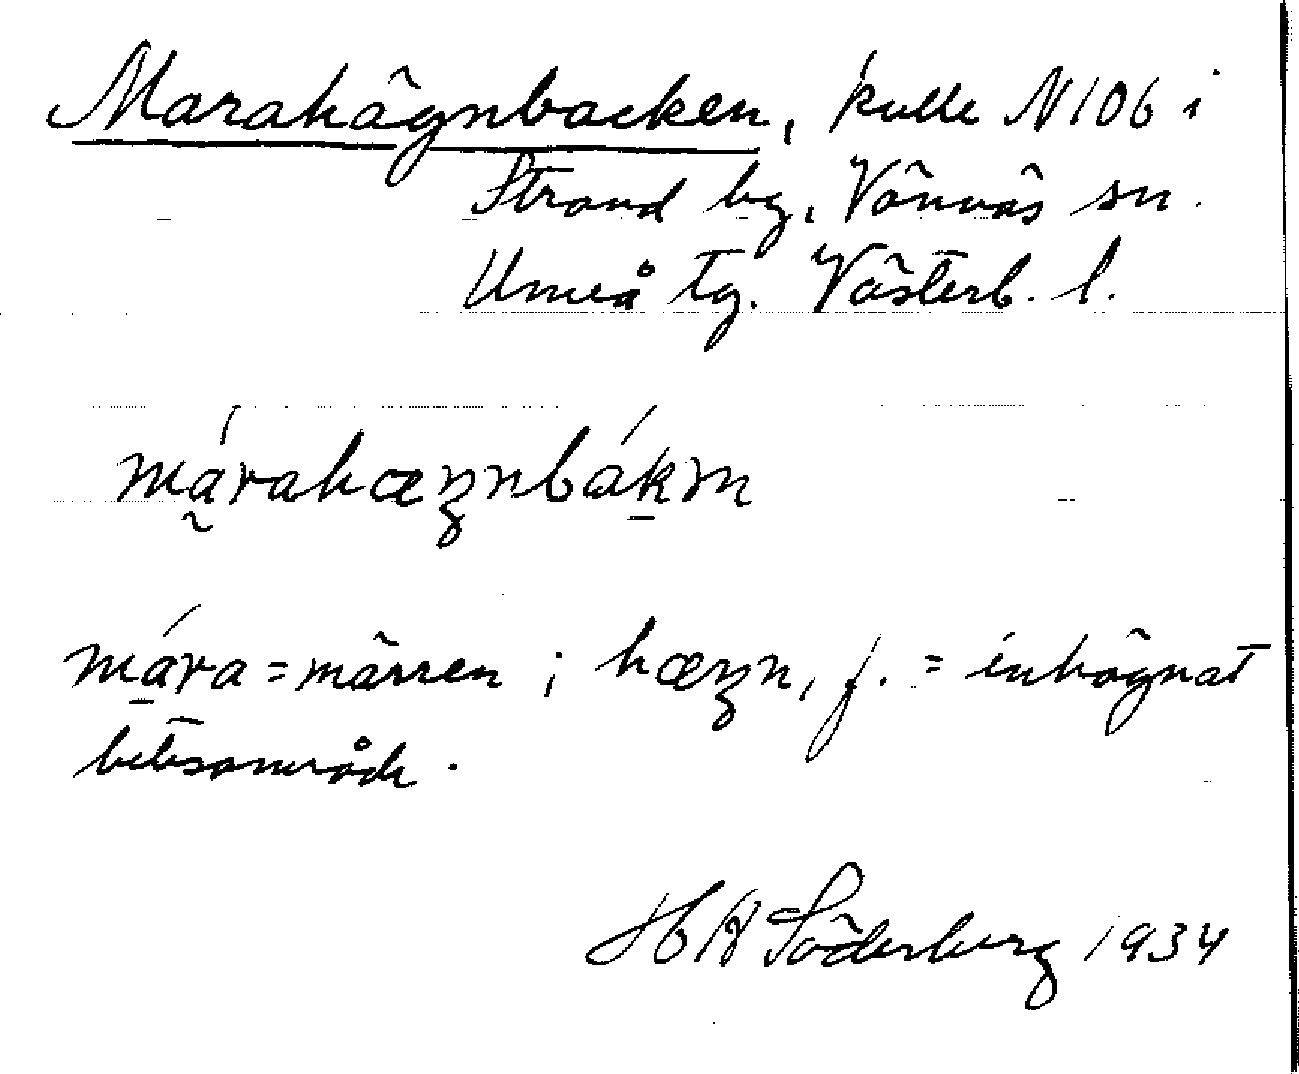 Marahägnbacken, kulle N 106 i
Strand by, Vännäs sn.
Umeå tg. Västerb. l.
márahæŋnbákɳ
mára = märren ; hæŋn, f. = inhägnat
betesområde.
H Söderberg 1934